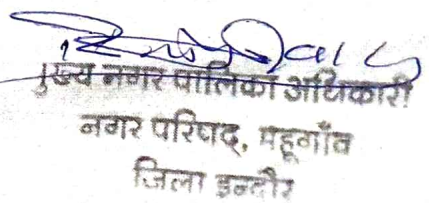 मुख्य नगर पालिका अधिकारी
नगर परिषद, महूगाँव
जिला इन्दौर